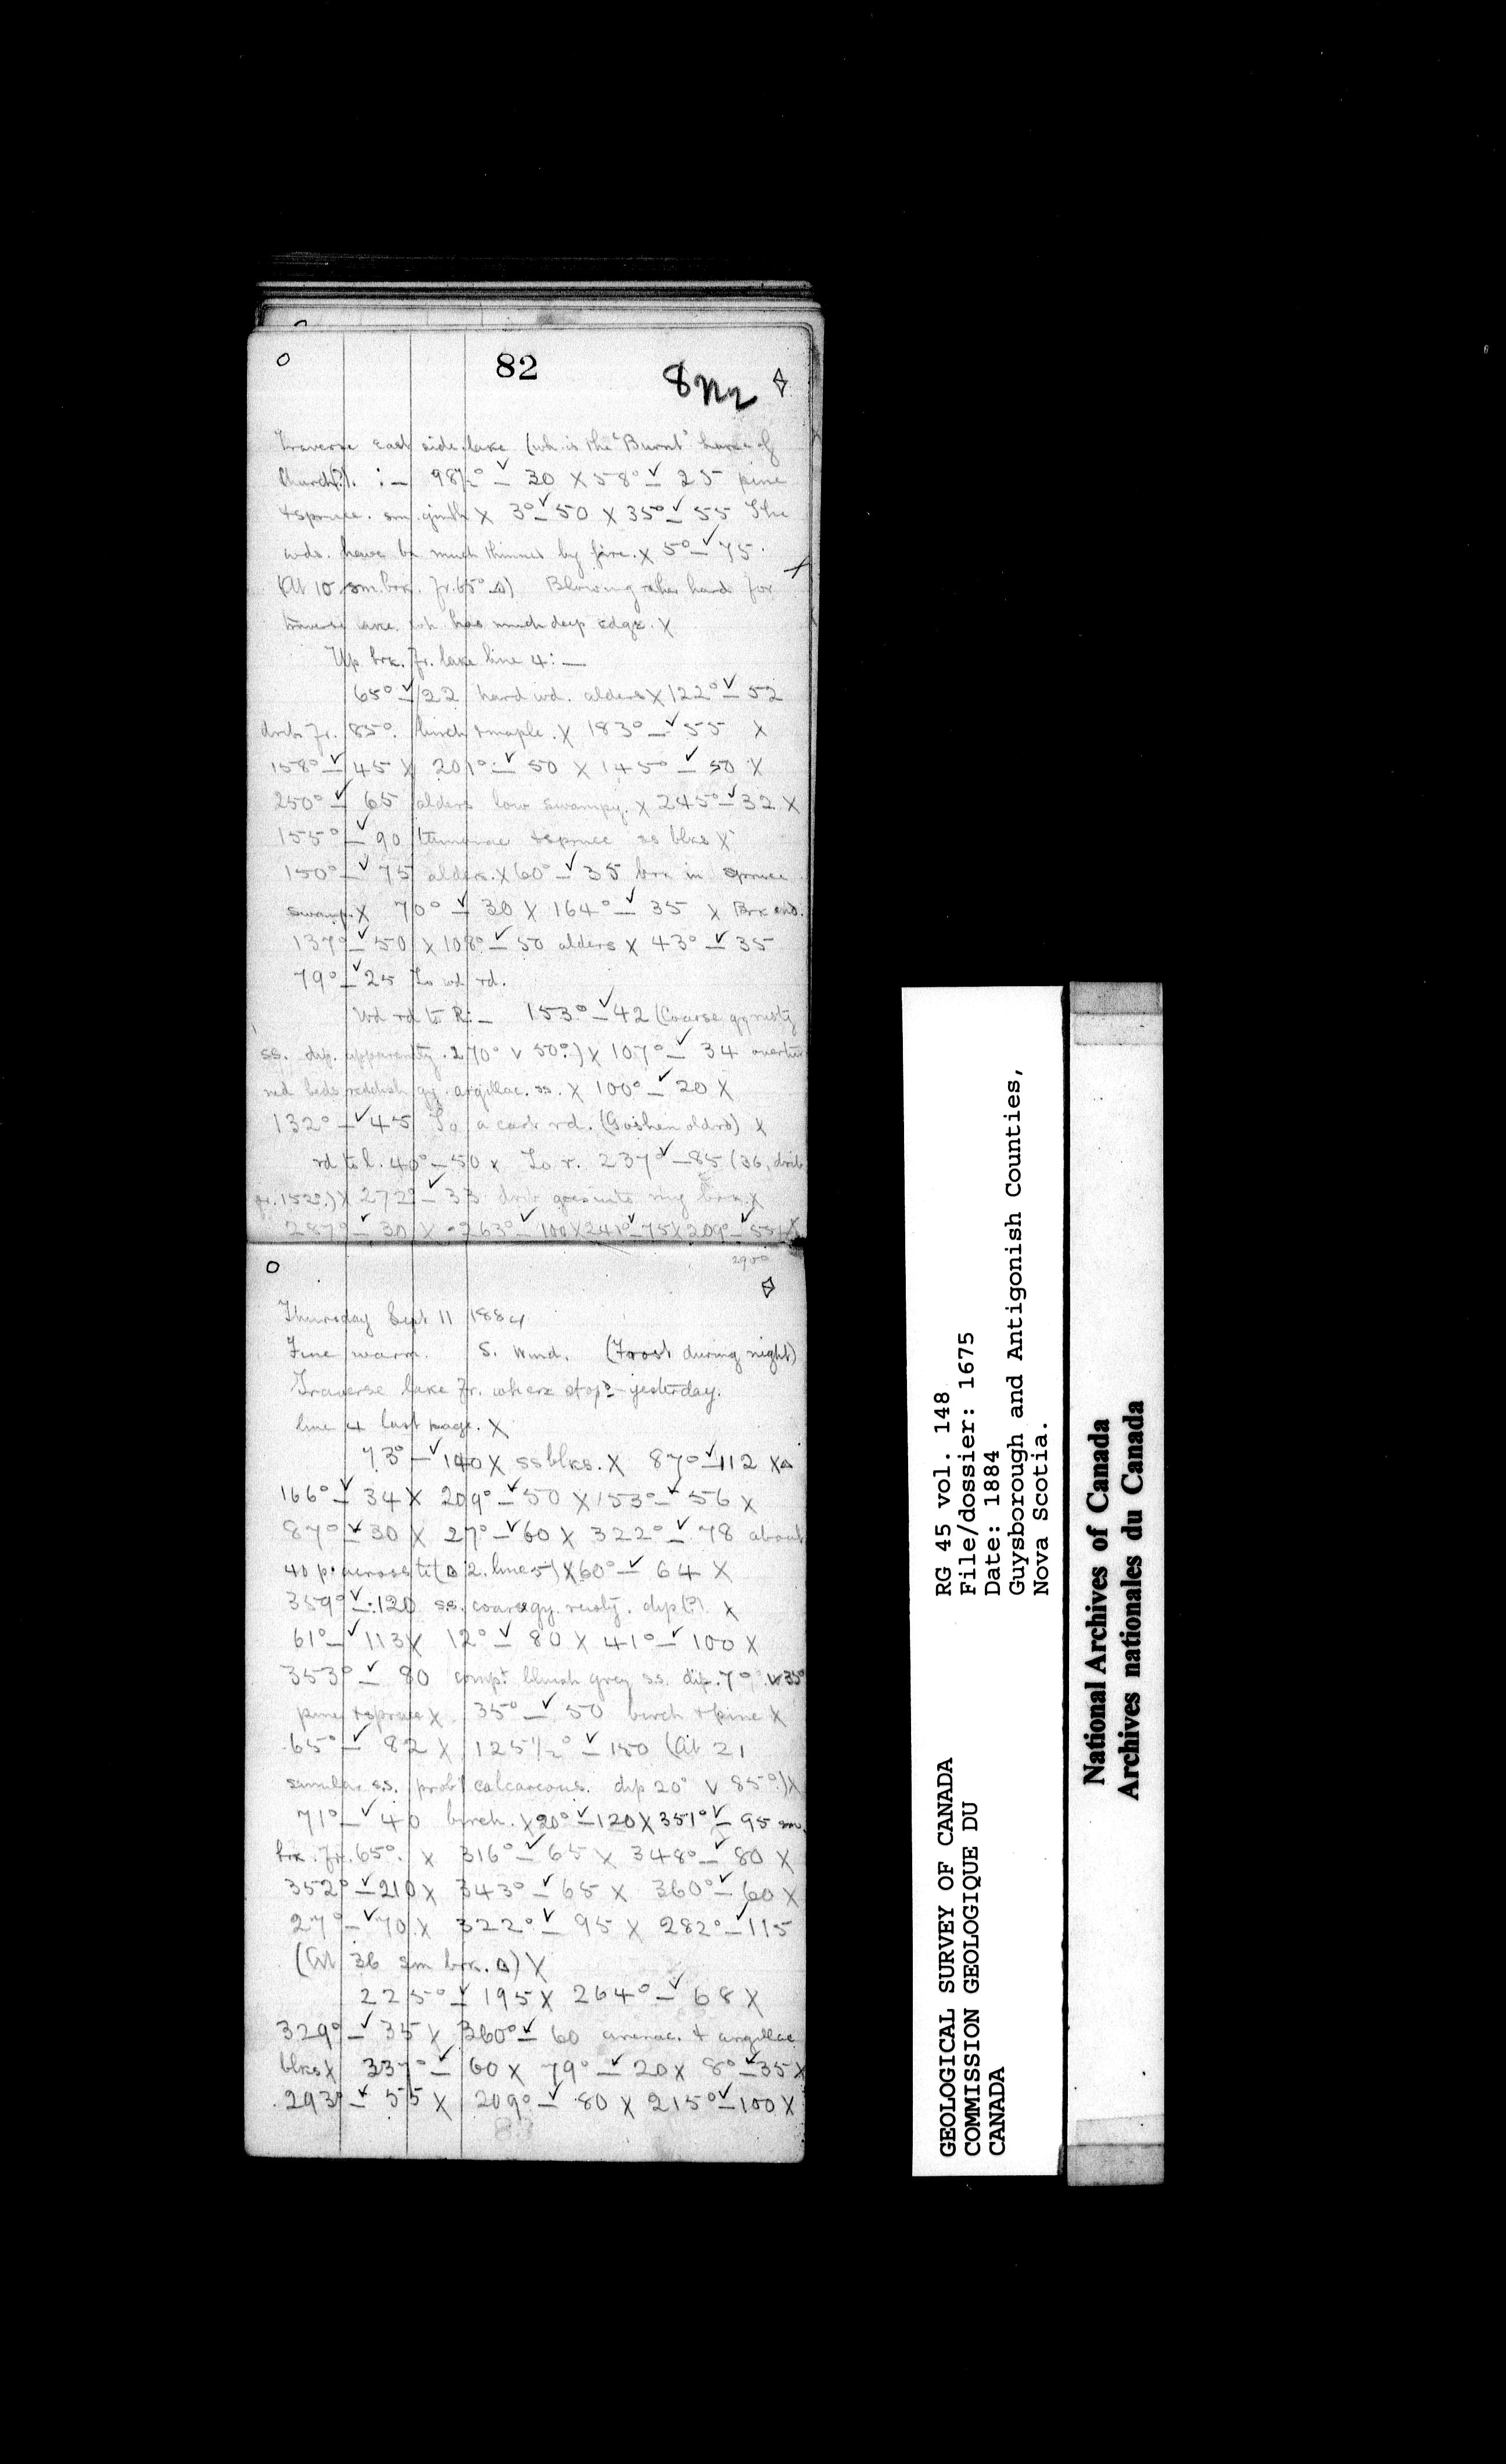 82
8
Traverse east side lake (wh. is the "Burnt" of
Church?). :— 98½° — 30 X 58° — 25 pine
+ spruce. sm. X 3° — 50 X 35° — 55 The
wds. have be much thinned by fire. X 5° — 75.
(At 10 sm. brk. fr. 65° ) Blowing rather hard for
traverse lake wh has much deep edge. X
Up brk. fr. lake line 4: —
65° — 122 hard wd. alders X 122° — 52
fr. 85°. birch + maple. X 183° — 55 X
158° — 45 X 201° — 50 X 145° — 50 X
250° — 65 alders low swampy. X 245° — 32 X
155° — 90 tamarac + spruce ss blks X
150° — 75 alders. X 60° — 35 brk in spruce
swamp. X 70° — 30 X 164° — 35 X Brk end.
137° — 50 X 108° — 50 alders X 43° — 35
79° — 25 To wd rd.
Wd rd to R: — 153° — 42 (Coarse gy rusty
ss. dip. apparently. 270° v 50°.) X 107° — 34
red beds reddish gy. argillac. ss. X 100° — 20 X
132° — 45 To a cart rd. (Goshen old rd) X
rd to l. 40° — 50 X To r. 237° — 85 (36,
fr. 152°.) X 272° — 33 goes into my brk. X
287° — 30 X 263° — 100 X 241° — 75 X 209° — 55 X
290°
Thursday Sept 11 1884
Fine warm. S. Wind. (Frost during night)
Traverse lake fr. where stopd yesterday.
line 4 last page. X
73° — 140 X ss blks. X 87° — 112 X
166° — 34 X 209° — 50 X 153° — 56 X
87° — 30 X 27° — 60 X 322° — 78 about
40 p. across to ( 2. line 5) X 60° — 64 X
359° — 120 s.s. coarse gy. rusty. dip (?) X
61° — 113 X 12° — 80 X 41° — 100 X
353° — 80 compt bluish grey ss. dip. 7° v 35°
pine + spruce X 35° — 50 birch + pine X
65° — 82 X 125½° — 150 (At 21
similar ss. probl calcareous. dip 20° v 85°.) X
71° — 40 birch. X 20° — 120 X 351° — 95 sm.
brk. fr. 65°. X 316° — 65 X 348° — 80 X
352° — 210 X 343° — 65 X 360° — 60 X
27° — 70 X 322° — 95 X 282° — 115
(At 36 sm brk. ) X
225° — 195 X 264° — 68 X
329° — 35 X 360° — 60 arenac. + argillac
blks X 337° — 60 X 79° — 20 X 8° — 35 X
293° — 55 X 209° — 80 X 215° — 100 X
83
GEOLOGICAL SURVEY OF CANADA
COMMISSION GEOLOGIQUE DU
CANADA
RG 45 vol. 148
File/dossier: 1675
Date: 1884
Guysborough and Antigonish Counties,
Nova Scotia.
National Archives of Canada
Archives nationales du Canada